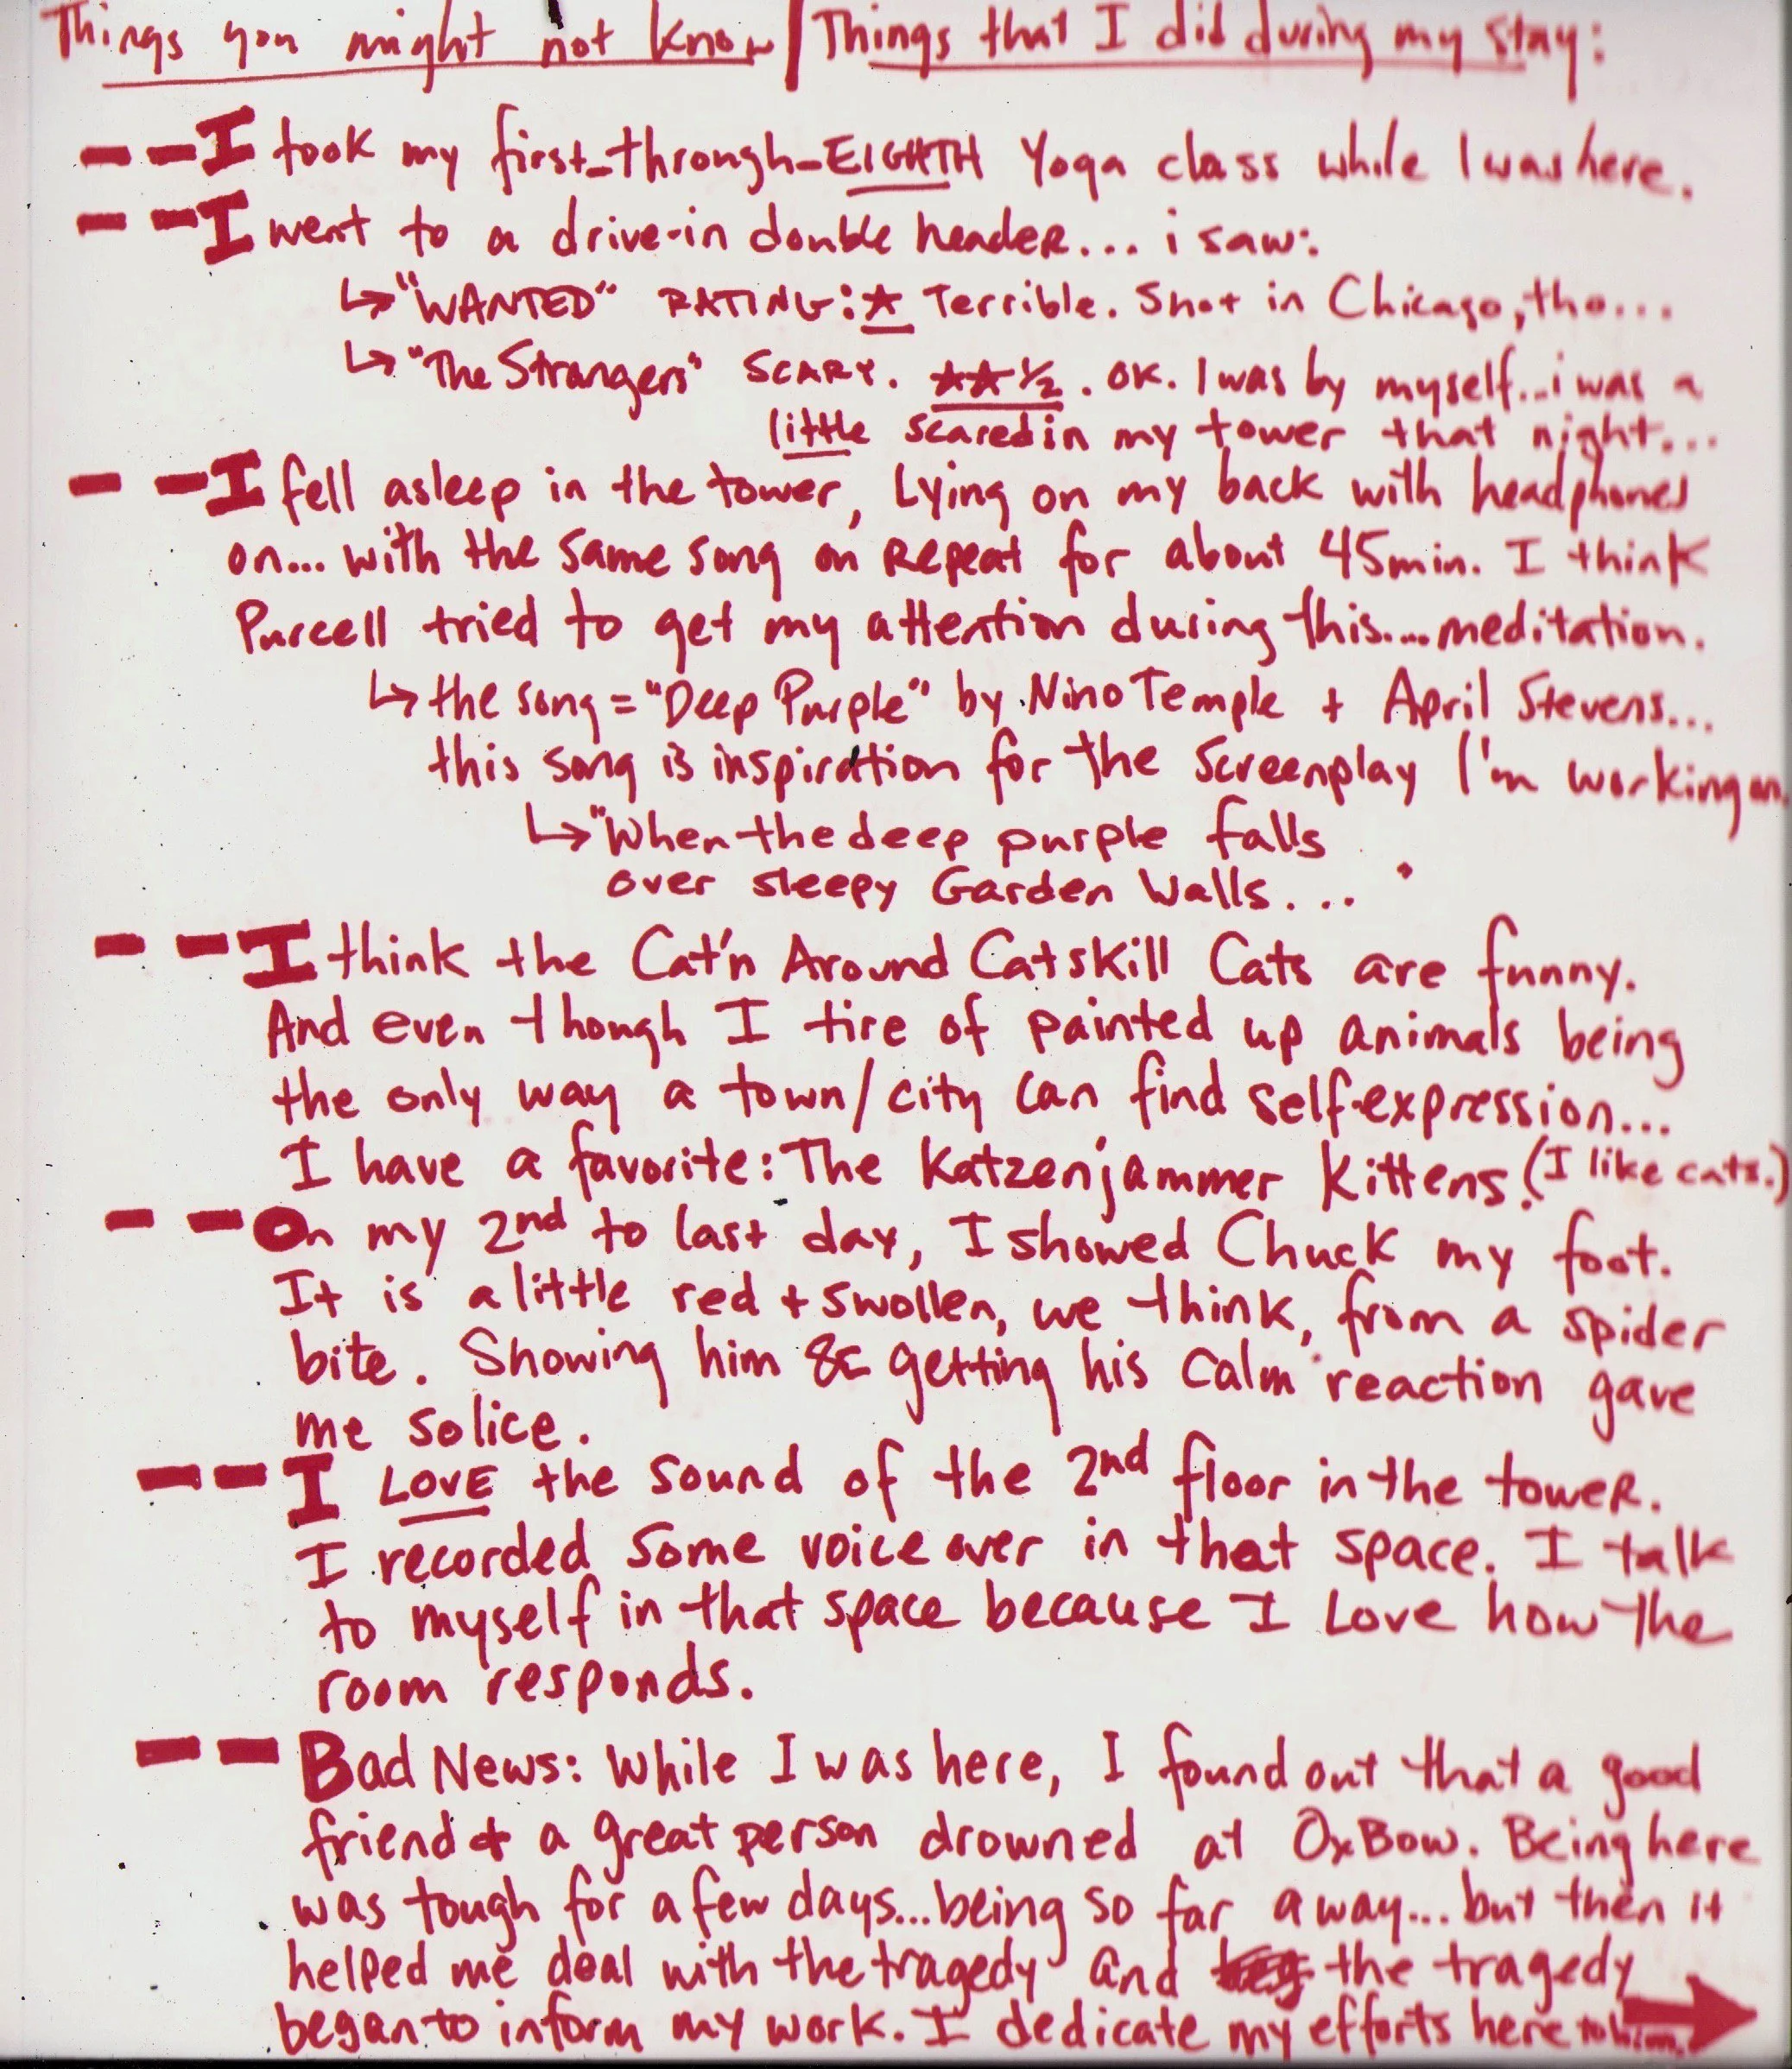 Things you might not know / Things that I did during my stay:
-- I took my first-through-EIGHTH Yoga class while I was here.
-- I went to a drive-in double header... i saw:
↳ "WANTED" RATING: ★ Terrible. Shot in Chicago, tho...
↳ "The Strangers" SCARY. ★★½. OK. I was by myself... i was a
little scared in my tower that night...
-- I fell asleep in the tower, Lying on my back with headphones
on... with the same song on Repeat for about 45min. I think
Purcell tried to get my attention during this.... meditation.
↳ the song = "Deep Purple" by Nino Temple + April Stevens...
this song is inspiration for the screenplay I'm working on.
↳ "When the deep purple falls
over sleepy Garden Walls...
-- I think the Cat'n Around Catskill Cats are funny.
And even though I tire of painted up animals being
the only way a town/city can find self-expression...
I have a favorite: The Katzenjammer Kittens. (I like cats.)
-- On my 2nd to last day, I showed Chuck my foot.
It is a little red + swollen, we think, from a spider
bite. Showing him & getting his calm reaction gave
me solice.
-- I LOVE the sound of the 2nd floor in the tower.
I recorded some voice over in that space. I talk
to myself in that space because I Love how the
room responds.
-- Bad News: While I was here, I found out that a good
friend & a great person drowned at OxBow. Being here
was tough for a few days... being so far away... but then it
helped me deal with the tragedy and the tragedy
began to inform my work. I dedicate my efforts here to him.